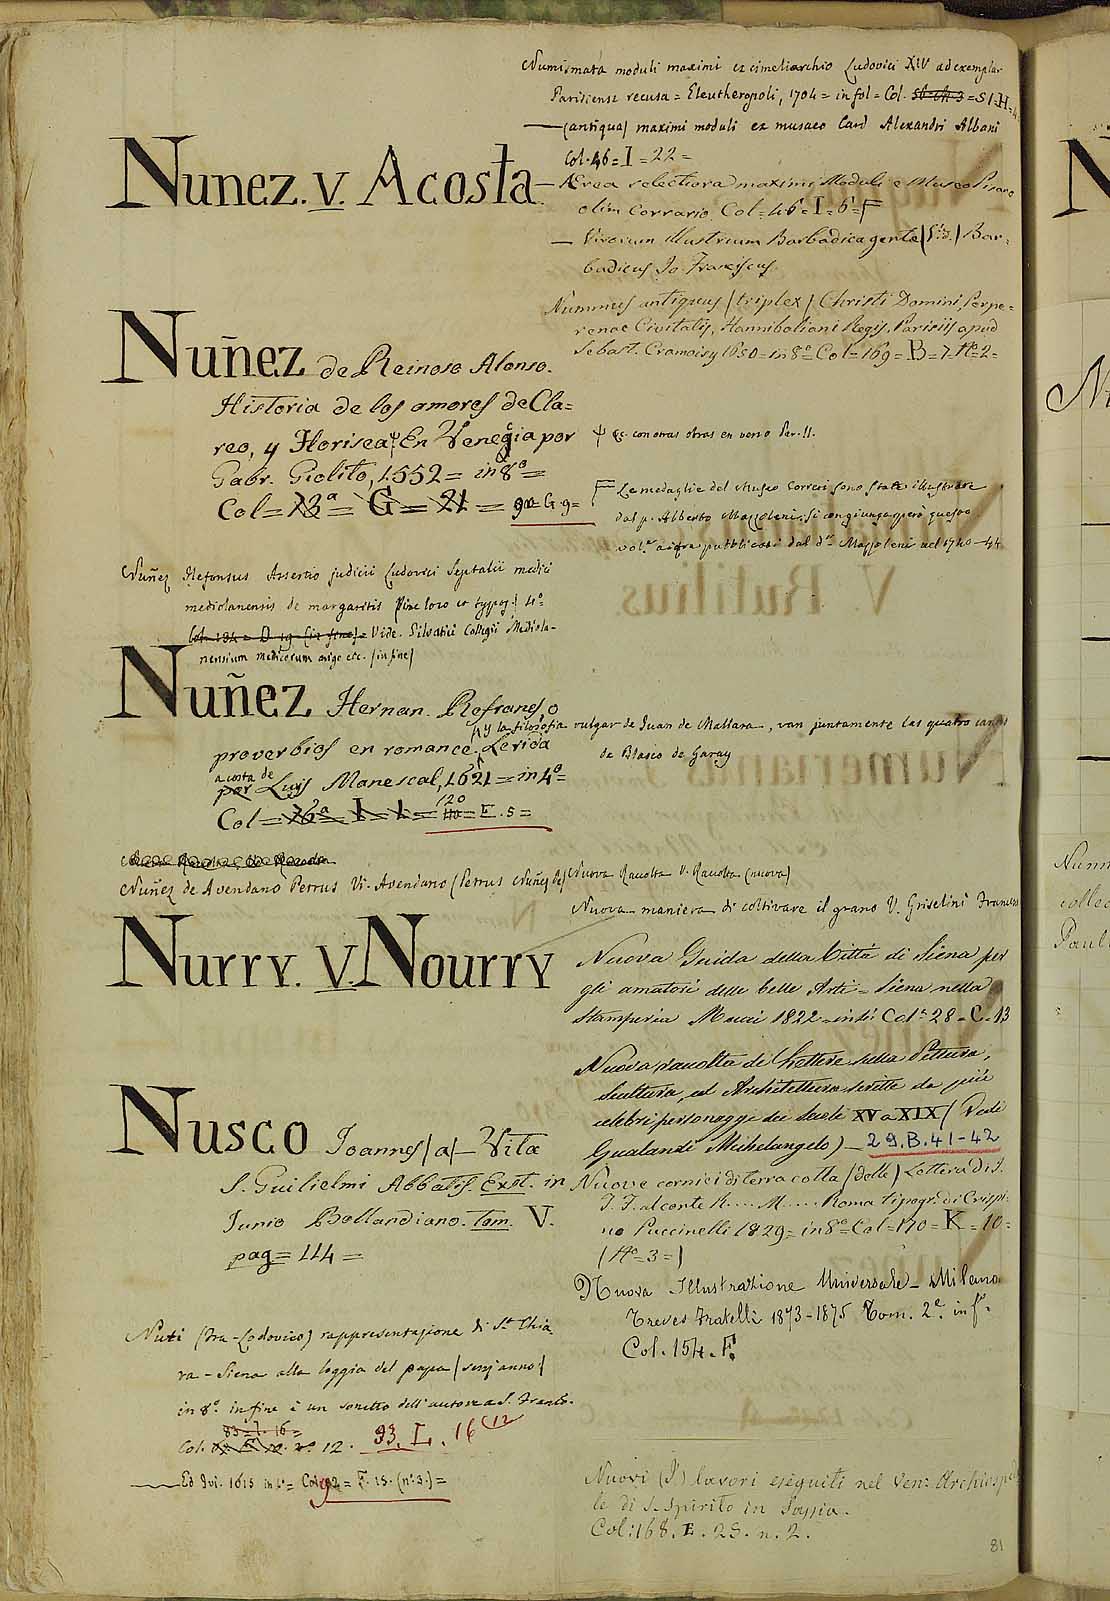 Nunez. V. Acosta
Nuñez de Reinoso Alonso.
Historia de los amores de Cla=
reo, y Florisea ψ En Venegia por
Gabr. Giolito, 1552 = in 8º =
Col = 13ª = G = 21 = 90 G. 9 =
Nuñez Ildefonsus Assertio judicii Ludovici Septalii medici
mediolanensis de margaritis (sine loco et typog.) 4º
Vide. Silvatici Collegii Mediola-
nensium medicorum origo etc. (in fine)
Nuñez Hernan. Refranes, o
proverbios en romance. Lerida
a costa de
por Luys Manescal, 1621 = in 4º =
Col = 76ª = I = 1 = 120 = E. 5 =
Nuñez de Avendano Petrus Vi. Avendano (Petrus Nuñez de)
Nurry. V. Nourry
Nusco Joannes (a) - Vita
S. Guilielmi Abbatis. Ext. in
Junio Bollandiano. Tom. V.
pag = 114 =
Nuti (Fra-Lodovico) rappresentazione di Sta Chia
ra - Siena alla loggia del papa (senz'anno)
in 8º. in fine è un sonetto dell'autore a S. Franco.
83 = I. 16 =
Col. nº 12. 93. L. 16 (12
Ed Ivi. 1615 in 4º = Col 92 = F. 15. (nº 3.) =
Numismata moduli maximi ex cimeliarchio Ludovici XIV ad exemplar
Parisiense recusa = Eleutheropoli, 1704 = in fol = Col. = 51. H =
— (antiqua) maximi moduli ex musaeo Card Alexandri Albani
Col. 46 = I = 22 =
— Ærea selectiora maximi Moduli e Museo Pisano
olim Corrario. Col = 46 = I = 6 = F
— Virorum illustrium Barbadica gente Bar=
badicus Jo. Franciscus
Nummus antiquus (triplex) Christi Domini, Perpe=
renae Civitatis, Hannibaliani Regis. Parisiis apud
Sebast. Cramoisy 1650 = in 8º = Col = 169 = B = 7. Nº = 2 =
ψ &c. con otras obras en verso Par. II.
F Le medaglie del Museo Correri sono state illustrate
dal p. Alberto Mazzoleni. Si congiunga però questo
vol.e ai pubblicati dal d.º Mazzoleni nel 1740-44
y la filosofia vulgar de Juan de Mallara, van juntamente las quatro cartas
de Blasco de Garay
Nuova Raccolta V. Raccolta (nuova)
Nuova maniera di coltivare il grano V. Griselini Francesco
Nuova Guida della Città di Siena per
gli amatori delle belle Arti - Siena nella
Stamperia Mucci 1822 = in 8º: Colª 28 = C. 13
Nuova raccolta di Lettere sulla Pittura,
Scultura, ed Architettura scritte da più
celebri personaggi dei Secoli XV a XIX (Vedi
Gualandi Michelangelo) - 29. B. 41-42
Nuove cornici di terra cotta (delle) Lettera di S.
F. al conte R.... M..... Roma tipogr. di Crispi-
no Puccinelli 1829 = in 8º = Col = 170 = K = 10 =
(Nº = 3 =)
Nuova Illustrazione Universale - Milano
Treves Fratelli 1873-1875 Tom. 2º. in fº.
Col. 154. F.
Nuovi (I) lavori eseguiti nel Ven: Archiospe
le di S. Spirito in Sassia.
Col: 168. E. 23. n. 2.
81